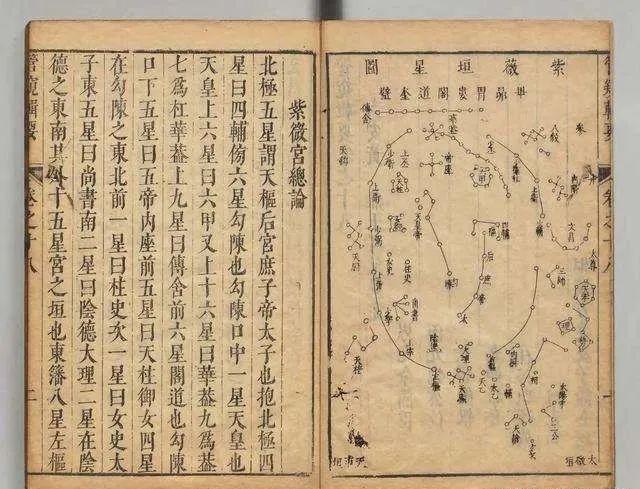 紫薇垣星圖
畢昴胃婁閣道奎壁
八穀
文昌
太尊
三師
三公
相
天乙
太乙
天槍
后
庶
帝
太
四輔
柱史
尚書
天柱
上衛
少衛
傳舍
天厨
天棓
太微垣
天市垣
紫微宮總論
北極五星謂天樞后宮庶子帝太子也抱北極四
星曰四輔傍六星勾陳也勾陳口中一星天皇也
天皇上六星曰六甲又上十六星曰華葢九爲葢
七爲杠華葢上九星曰傳舍前六星閣道也勾陳
口下五星曰五帝内座前五星曰天柱御女四星
在勾陳之東北前一星曰柱史次一星曰女史太
子東五星曰尚書南二星曰陰德大理二星在陰
德之東南其外十五星宮之垣也東籓八星左樞
管窺輯要
卷之十八
二